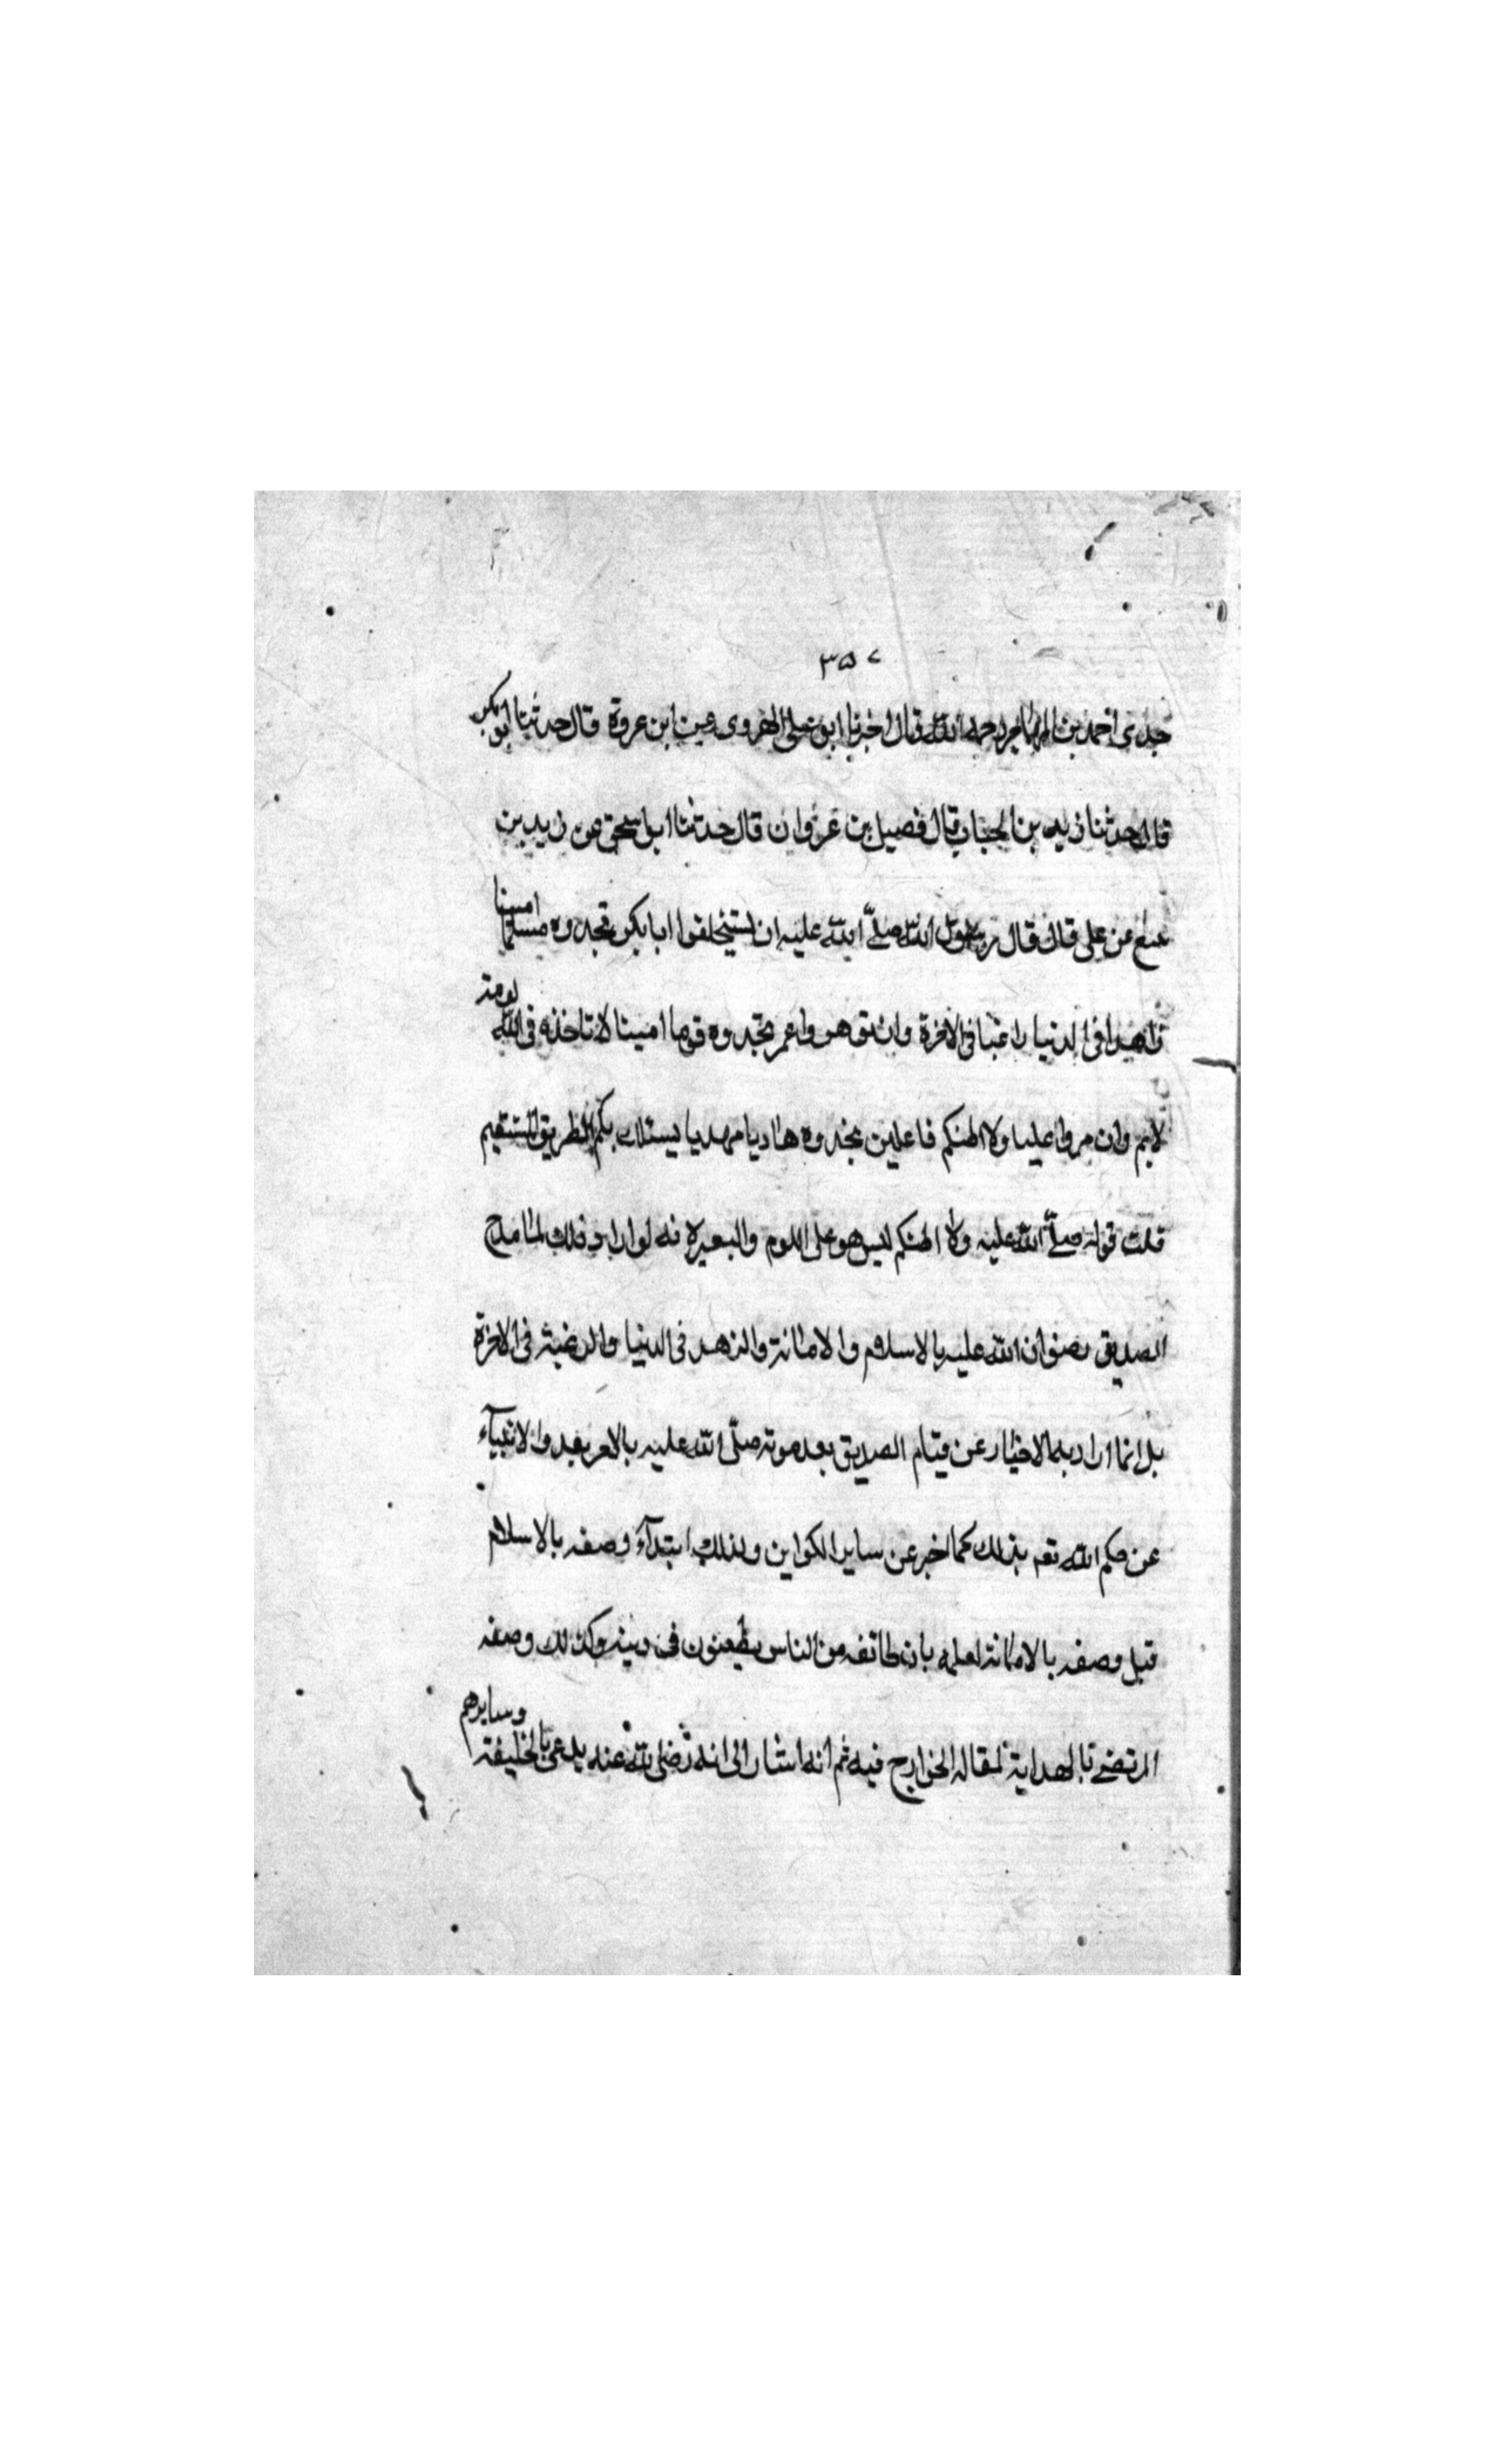 ٣٥٧
جدى احمد بن المهاجر رحمه الله قال اخبرنا ابو على الهروى عن ابن عروة قال حدثنا ابو بكر
قال حدثنا زيد بن الحباب قال فضيل بن غزوان قال حدثنا ابو اسحق عن زيد بن
عن على قال قال رسول الله صلّى الله عليه ان تستخلفوا ابا بكر تجدوه مسلما امينا
زاهدا فى الدنيا راغبا فى الاخرة وان تؤمروا عمر تجدوه قويا امينا لا تاخذه فى الله لومة
لايم وان مروا عليا ولا اظنكم فاعلين تجدوه هاديا مهديا يسلك بكم الطريق المستقيم
قلت قوله صلّى الله عليه ولا اظنكم ليس هو على اللوم فانه لو اراد ذلك لما مدح
الصديق رضوان الله عليه بالاسلام والامانة والزهد فى الدنيا والرغبة فى الاخرة
بل انما اراد به الاخبار عن قيام الصديق بعد موته صلّى الله عليه بالامر بعد والانبياء
عن حكم الله تعم بذلك كما اخبر عن ساير الكواين ولذلك ابتداء وصفه بالاسلام
قبل وصفه بالامانة لعلمه بان طائفه من الناس يطعنون فى دينه وكذلك وصفه
المرتضى بالهداية لمقاله الخوارج فيه ثم انه اشار الى انه رضى الله عنه يدعى بالخليفة وسايرهم